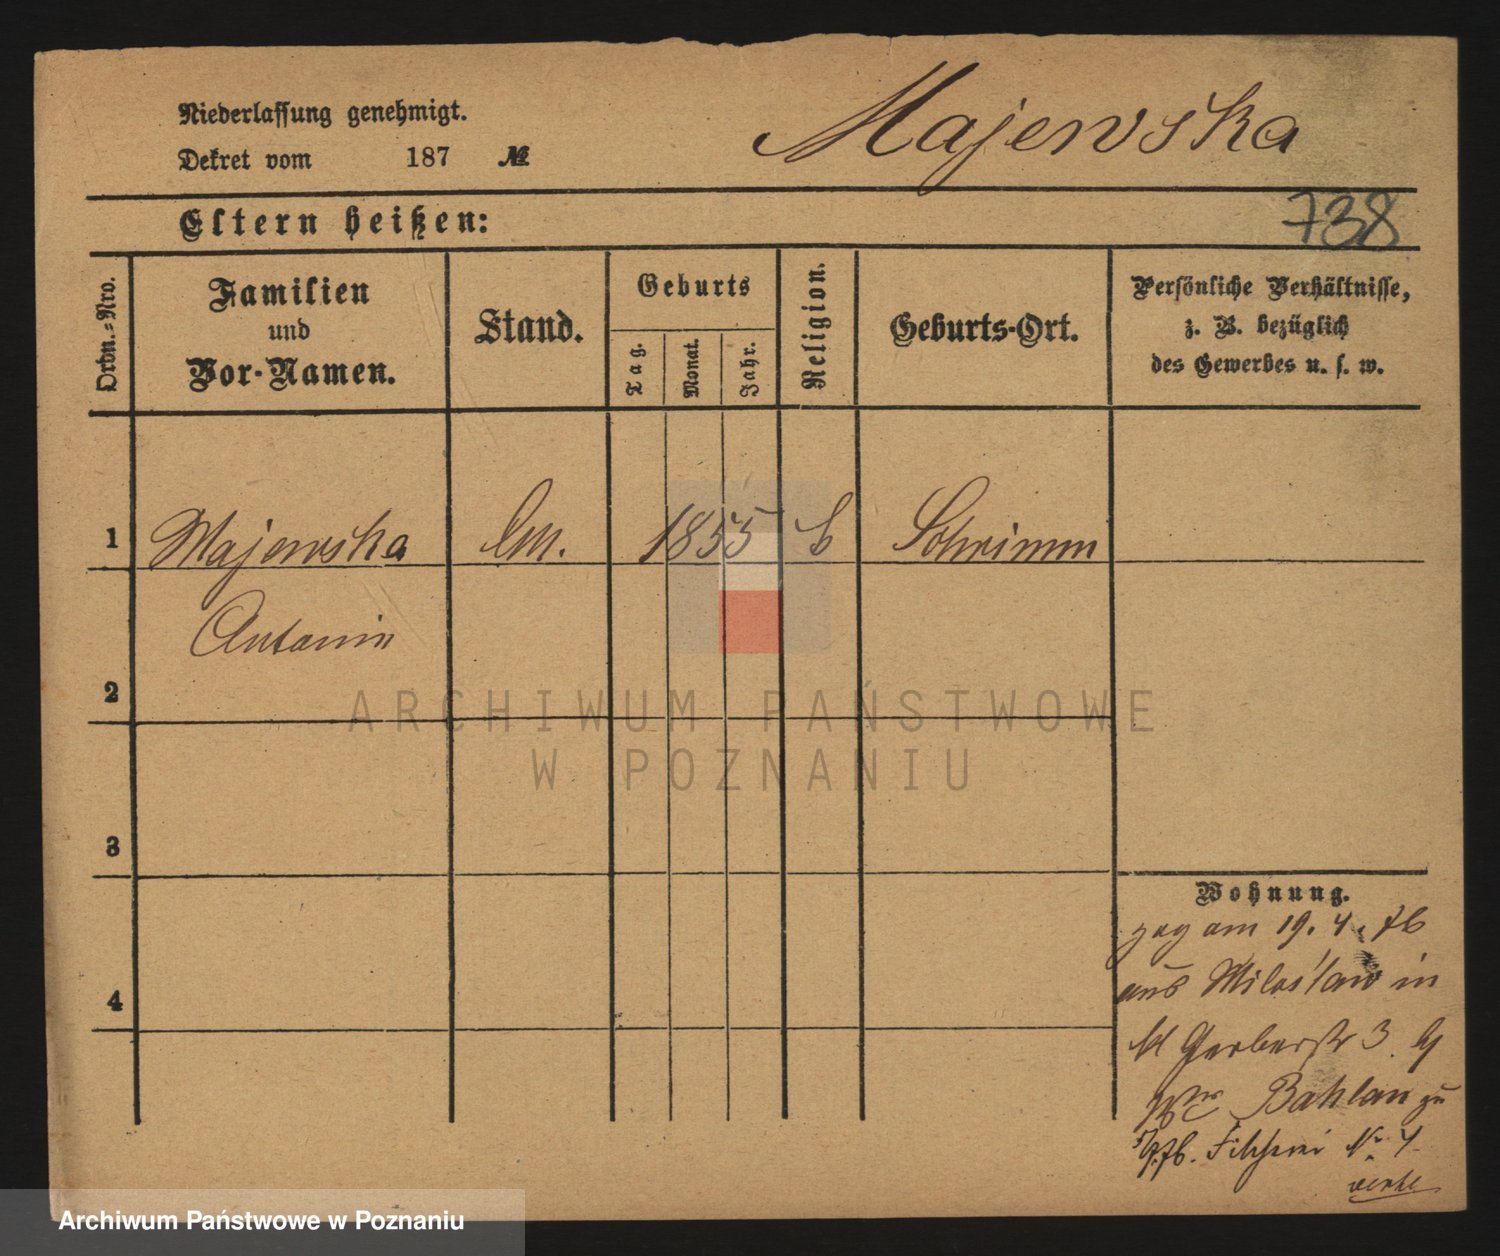 Niederlassung genehmigt.
Dekret vom 187 №
Majewska
738
Eltern heißen:
Ordn.-Nro.
Familien
und
Vor-Namen.
Stand.
Geburts
Tag.
Monat.
Jahr.
Religion.
Geburts-Ort.
Persönliche Verhältnisse,
z. B. bezüglich
des Gewerbes u. s. w.
1 Majewska 1855 Schrimm
Antonin
2
ARCHIWUM PAŃSTWOWE
W POZNANIU
3
4
Wohnung.
zog am 19. 4. 76
aus Miloslaw in
kl Gerberstr 3
Bahlau zu
Fischerei No 4
Archiwum Państwowe w Poznaniu